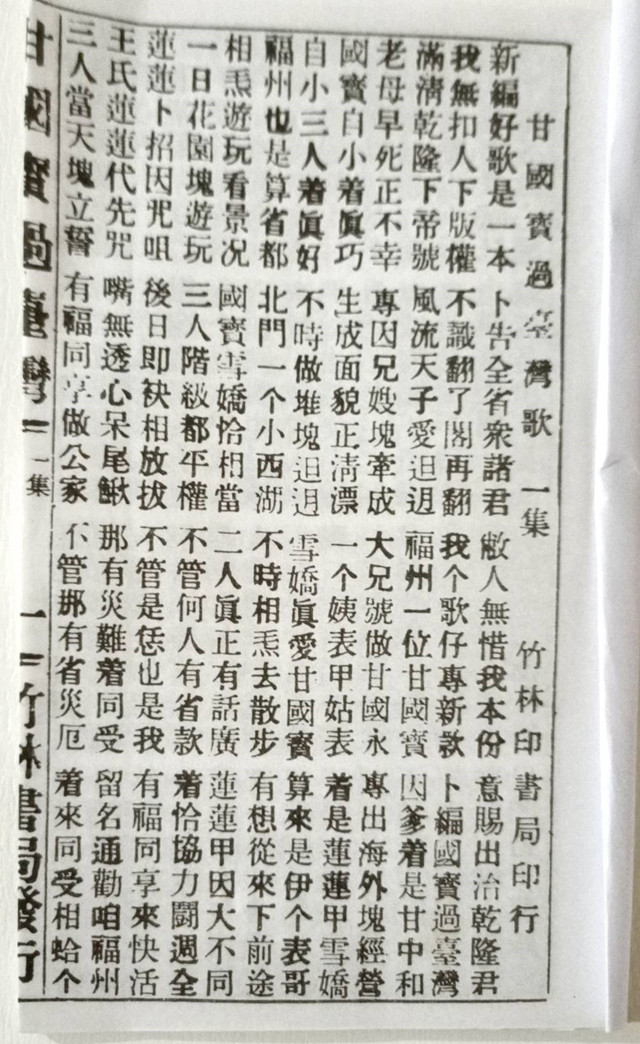 甘國寶過臺灣歌 一集 竹林印書局印行
新編好歌是一本 卜告全省衆諸君 敝人無惜我本份 意賜出治乾隆君
我無扣人下版權 不識翻了閣再翻 我个歌仔專新款 卜編國寶過臺灣
滿淸乾隆下帝號 風流天子愛𨑨迌 福州一位甘國寶 因爹着是甘中和
老母早死正不幸 專因兄嫂塊牽成 大兄號做甘國永 專出海外塊經營
國寶自小着眞巧 生成面貌正淸漂 一个姨表甲姑表 着是蓮蓮甲雪嬌
自小三人着眞好 不時做堆塊𨑨迌 雪嬌眞愛甘國寶 算來是伊个表哥
福州也是算省都 北門一个小西湖 不時相𤆬去散步 有想從來下前途
相𤆬遊玩看景况 國寶雪嬌恰相當 二人眞正有話廣 蓮蓮甲因大不同
一日花園塊遊玩 三人階級都平權 不管何人有省款 着恰協力鬪週全
蓮蓮卜招因咒咀 後日即袂相放拔 不管是恁也是我 有福同享來快活
王氏蓮蓮代先咒 嘴無透心呆尾鰍 那有災難着同受 留名通勸咱福州
三人當天塊立誓 有福同享做公家 不管那有省災厄 着來同受相蛤个
甘國寶過臺灣 一集 一 竹林書局發行